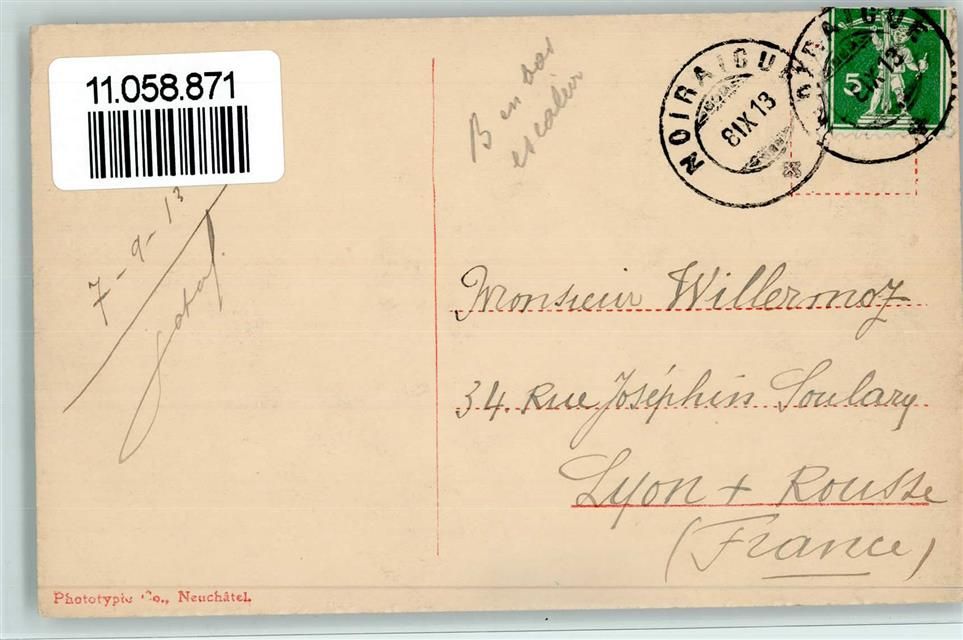 11.058.871
B en bas
escalier
MOIRAIGUE
8 IX 13
MOIRAIGUE
8 IX 13
5
7-9-13
Monsieur Willermoz
34. Rue Joséphin Soulary
Lyon + Rousse
(France)
Phototypie Co., Neuchâtel.